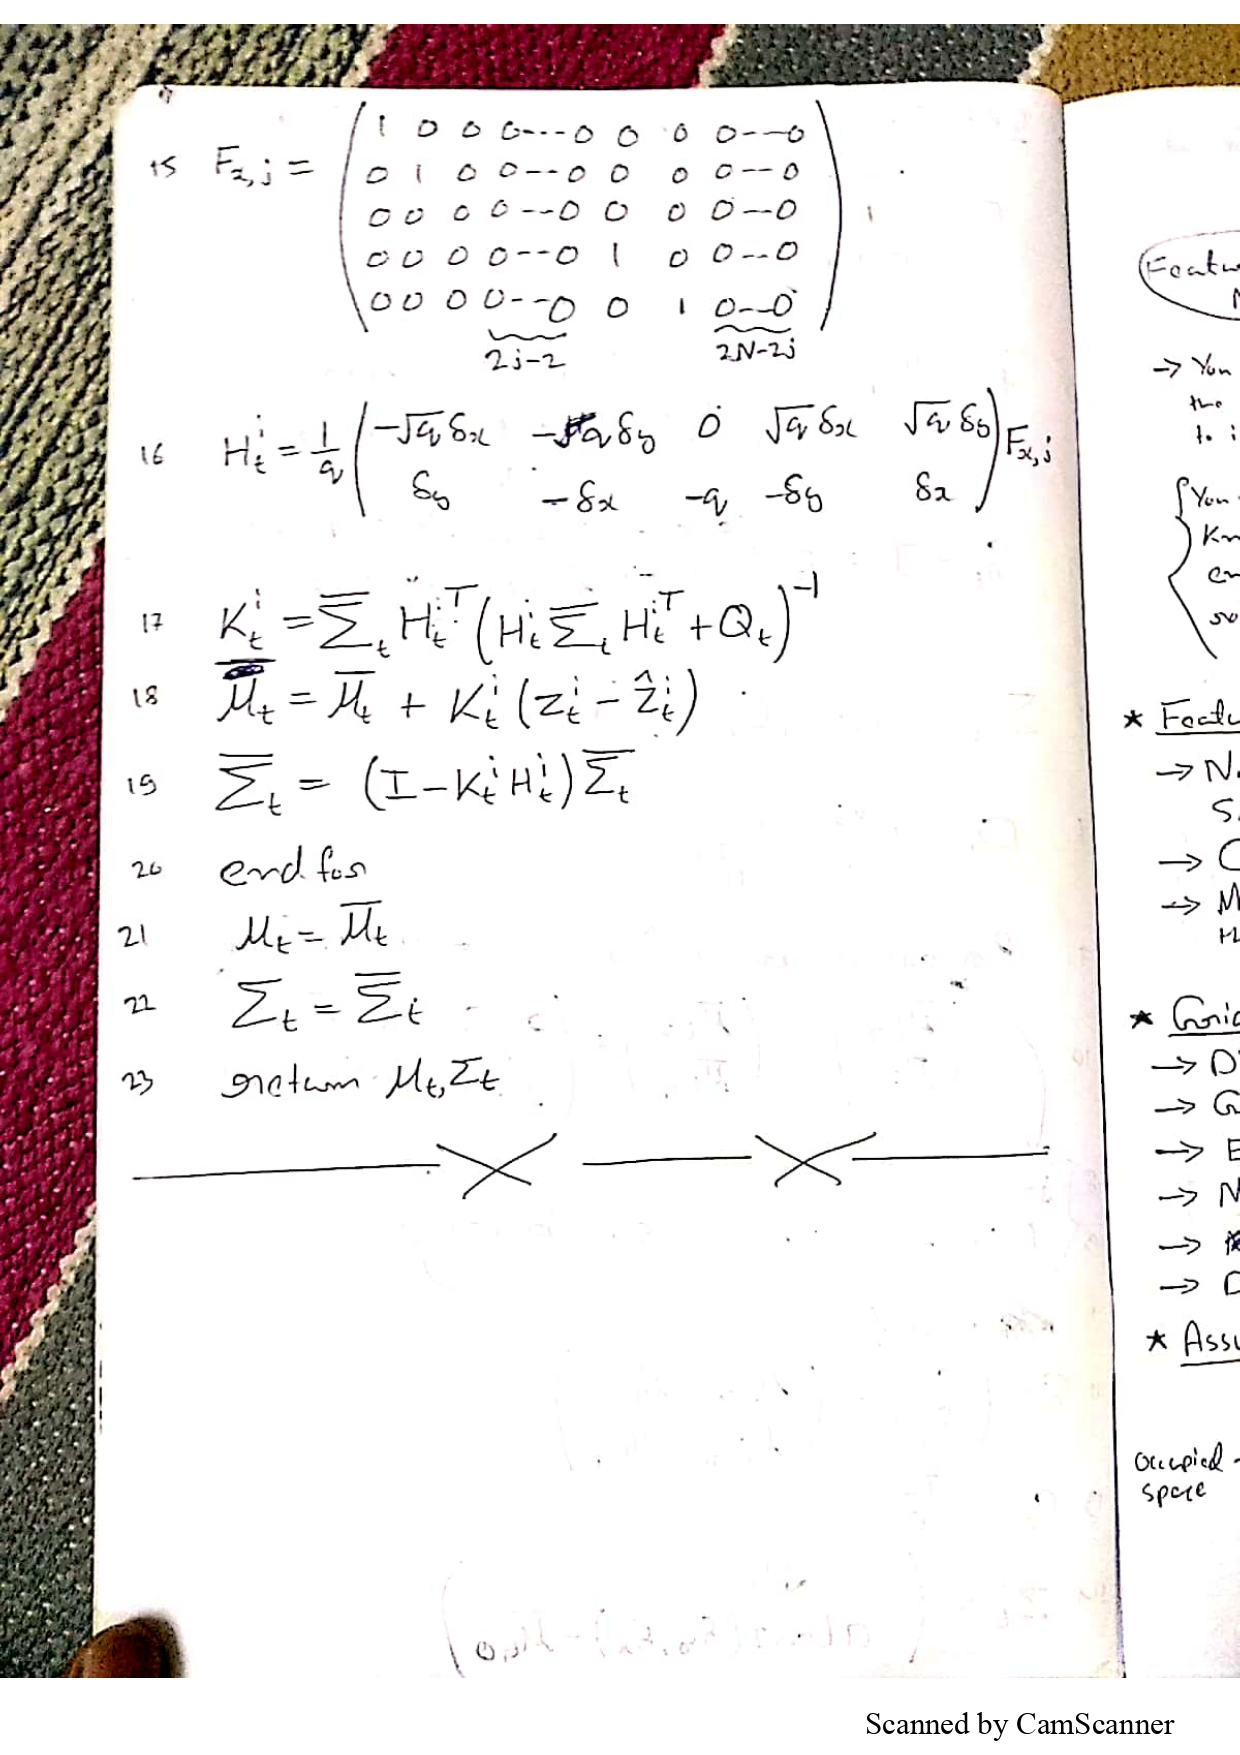 15 F_{x,j} = ( 1 0 0 0---0 0 0 0---0
0 1 0 0---0 0 0 0---0
0 0 0 0---0 0 0 0---0
0 0 0 0---0 1 0 0---0
0 0 0 0---0 0 1 0---0 )
2j-2 2N-2j
16 H_t^i = 1/q ( -√q δx -√q δy 0 √q δx √q δy
δy -δx -q -δy δx ) F_{x,j}
17 K_t^i = Σ̅_t H_t^{iT} (H_t^i Σ̅_t H_t^{iT} + Q_t)^{-1}
18 μ̅_t = μ̅_t + K_t^i (z_t^i - ẑ_t^i)
19 Σ̅_t = (I - K_t^i H_t^i) Σ̅_t
20 end for
21 μ_t = μ̅_t
22 Σ_t = Σ̅_t
23 return μ_t, Σ_t
→ You
the
to i
{ You
Kn
en
so
★ Featu
→ N
S
→ C
→ M
★ Grid
→ D
→ G
→ E
→ N
→
→ D
★ Assu
Occupied -
space
Scanned by CamScanner